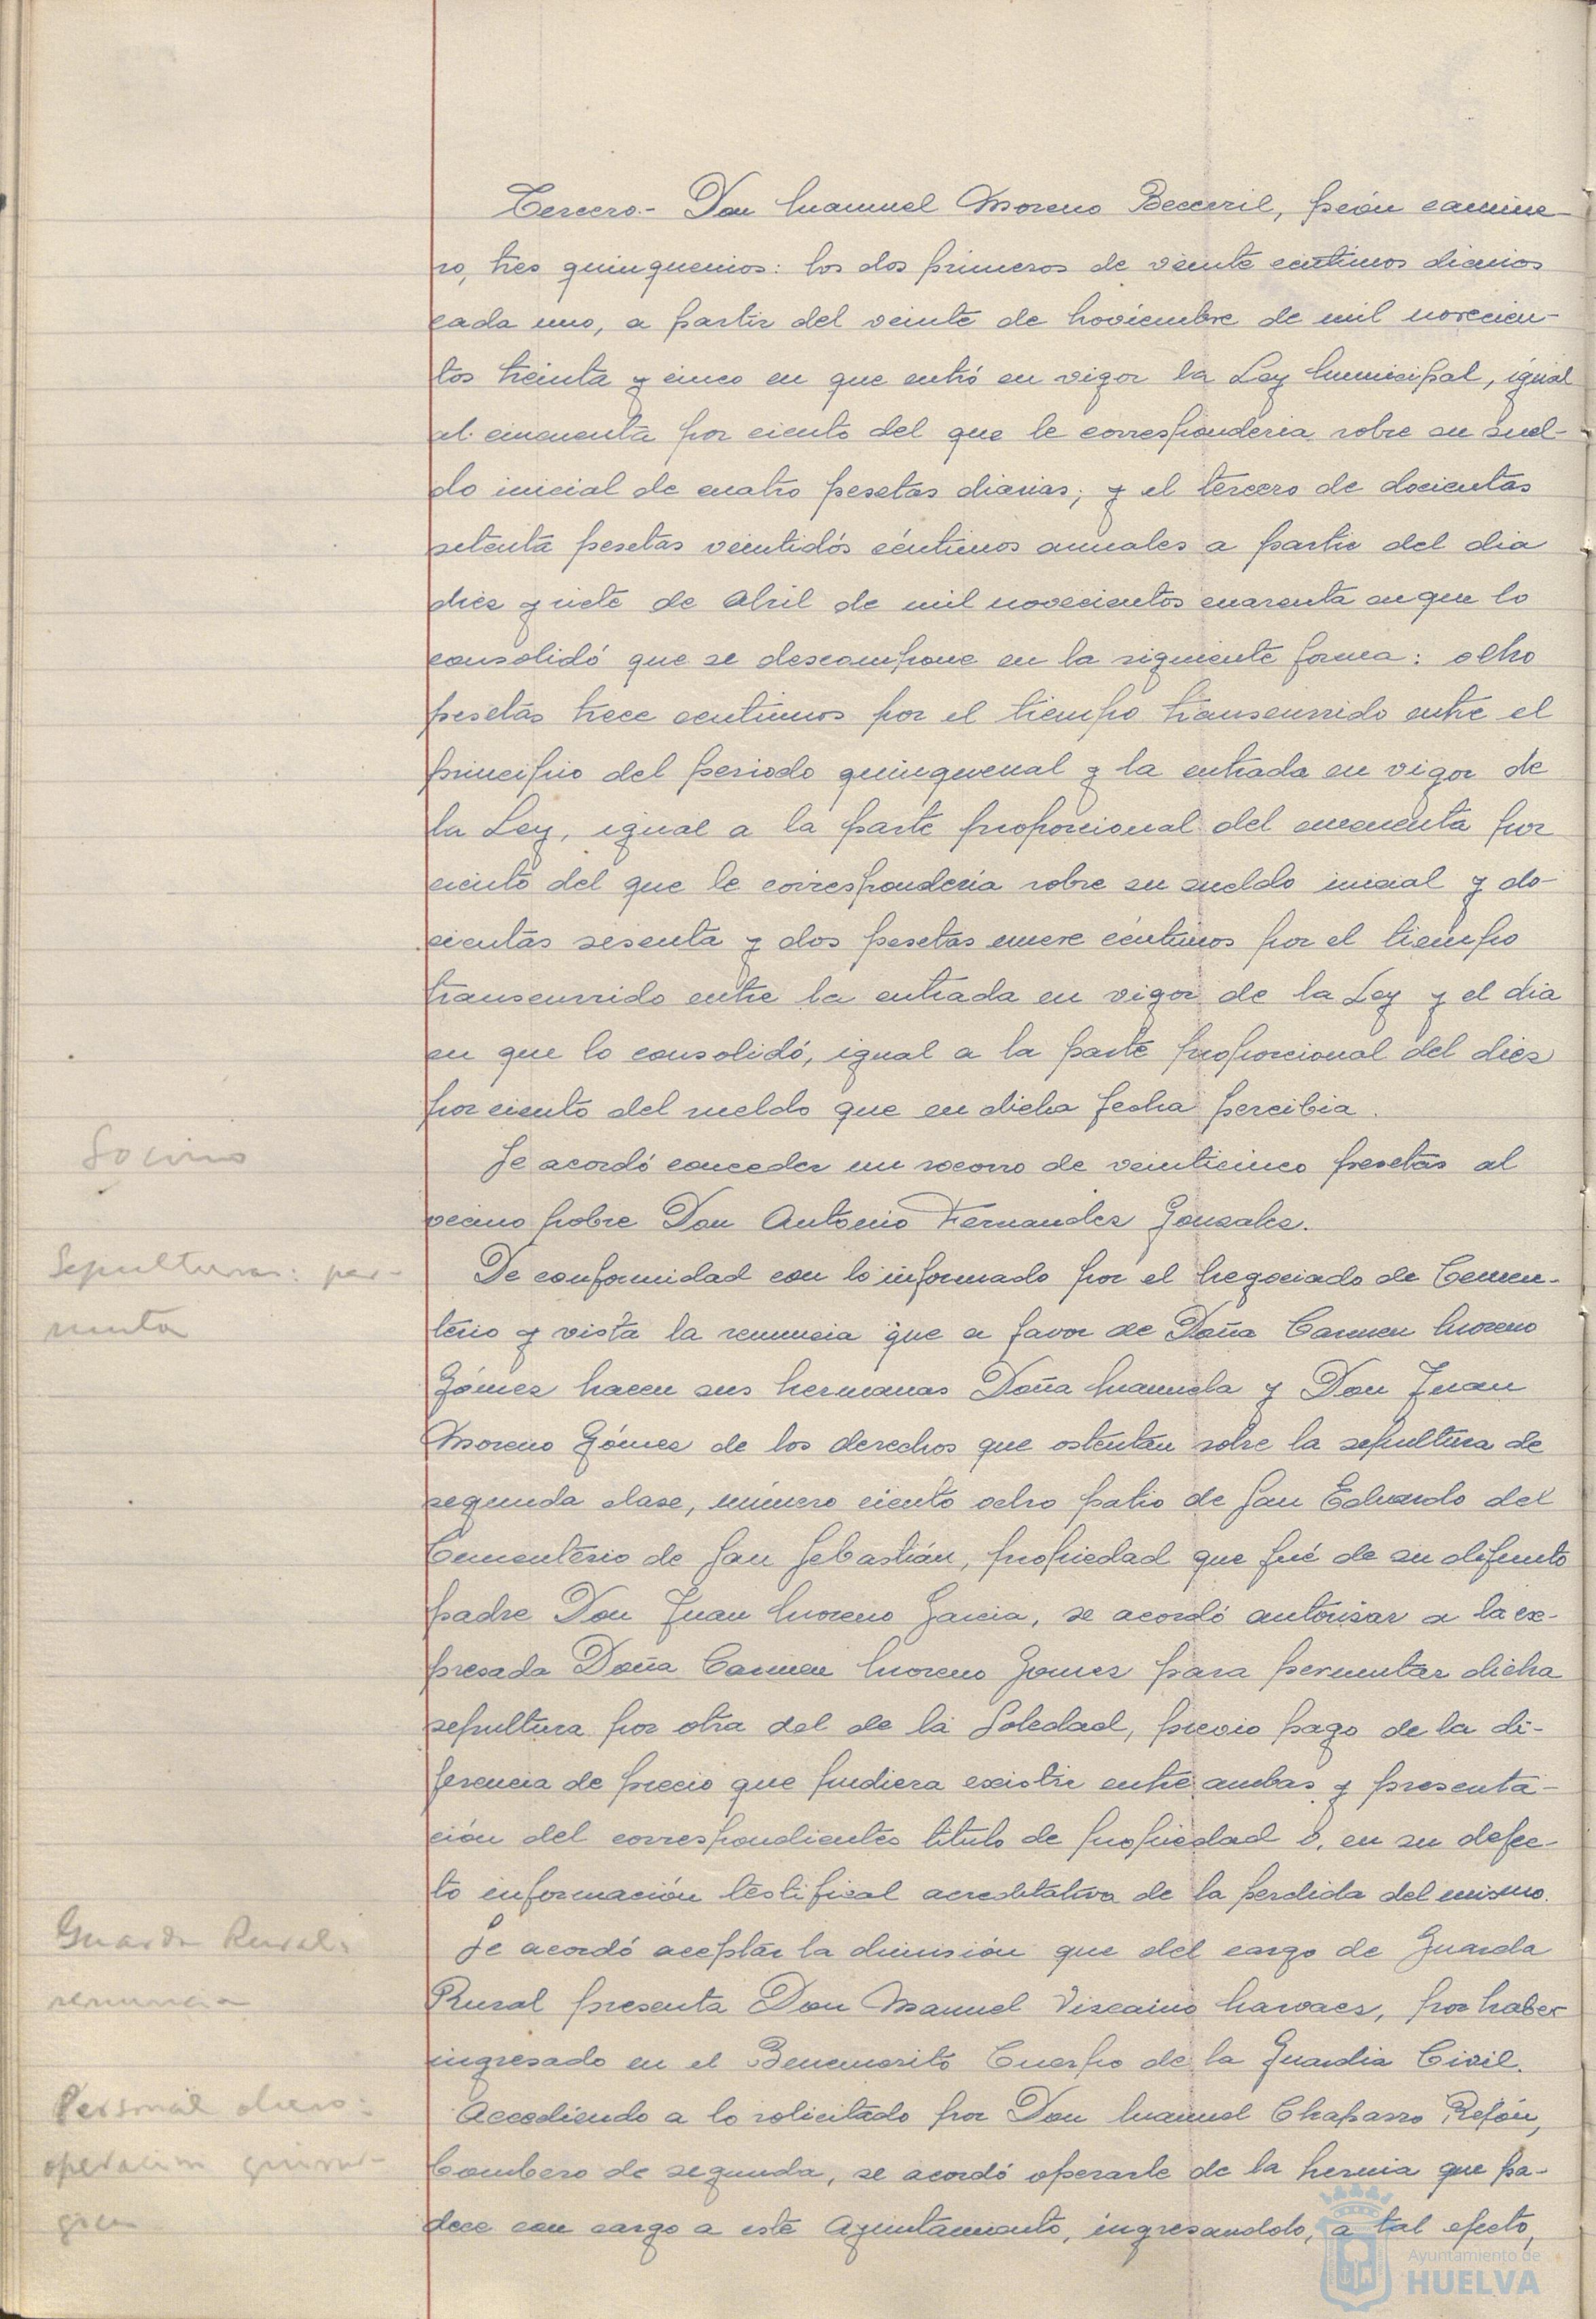 Tercero.- Don Manuel Moreno Becerril, peón camine-
ro, tres quinquenios: los dos primeros de veinte céntimos diarios
cada uno, a partir del veinte de Noviembre de mil novecien-
tos treinta y cinco en que entró en vigor la Ley Municipal, igual
al cincuenta por ciento del que le correspondería sobre su suel-
do inicial de cuatro pesetas diarias; y el tercero de docientas
setenta pesetas veintidós céntimos anuales a partir del dia
diez y siete de Abril de mil novecientos cuarenta en que lo
consolidó que se descompone en la siguiente forma: ocho
pesetas trece centimos por el tiempo transcurrido entre el
principio del periodo quinquenal y la entrada en vigor de
la Ley, igual a la parte proporcional del cincuenta por
ciento del que le correspondería sobre su sueldo inicial y do-
cientas sesenta y dos pesetas nueve céntimos por el tiempo
transcurrido entre la entrada en vigor de la Ley y el dia
en que lo consolidó, igual a la parte proporcional del diez
por ciento del sueldo que en dicha fecha percibia.
Socorro
Se acordó conceder un socorro de veinticinco pesetas al
vecino pobre Don Antonio Fernandez Gonzalez.
Sepulturas: per-
muta
De conformidad con lo informado por el Negociado de Cemen-
terio y vista la renuncia que a favor de Doña Carmen Moreno
Gómez hacen sus hermanas Doña Manuela y Don Juan
Moreno Gómez de los derechos que ostentan sobre la sepultura de
segunda clase, número ciento ocho patio de San Eduardo del
Cementerio de San Sebastián, propiedad que fué de su difunto
padre Don Juan Moreno Garcia, se acordó autorizar a la ex-
presada Doña Carmen Moreno Gomez para permutar dicha
sepultura por otra del de la Soledad, previo pago de la di-
ferencia de precio que pudiera existir entre ambas y presenta-
ción del correspondientes titulo de propiedad o, en su defec-
to información testifical acreditativa de la perdida del mismo.
Guarda Rural:
renuncia
Se acordó aceptar la dimisión que del cargo de Guarda
Rural presenta Don Manuel Vizcaino Narvaez, por haber
ingresado en el Benemerito Cuerpo de la Guardia Civil.
Personal obrero:
operación quirur-
gica
Accediendo a lo solicitado por Don Manuel Chaparro Rejón,
bombero de segunda, se acordó operarle de la hernia que pa-
dece con cargo a este Ayuntamiento, ingresandolo, a tal efecto,
Ayuntamiento de
HUELVA